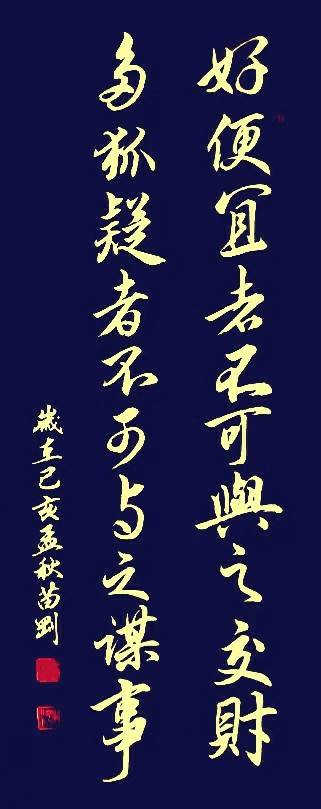 好便宜者不可與之交財
多狐疑者不可与之谋事
歲在己亥孟秋苗劉